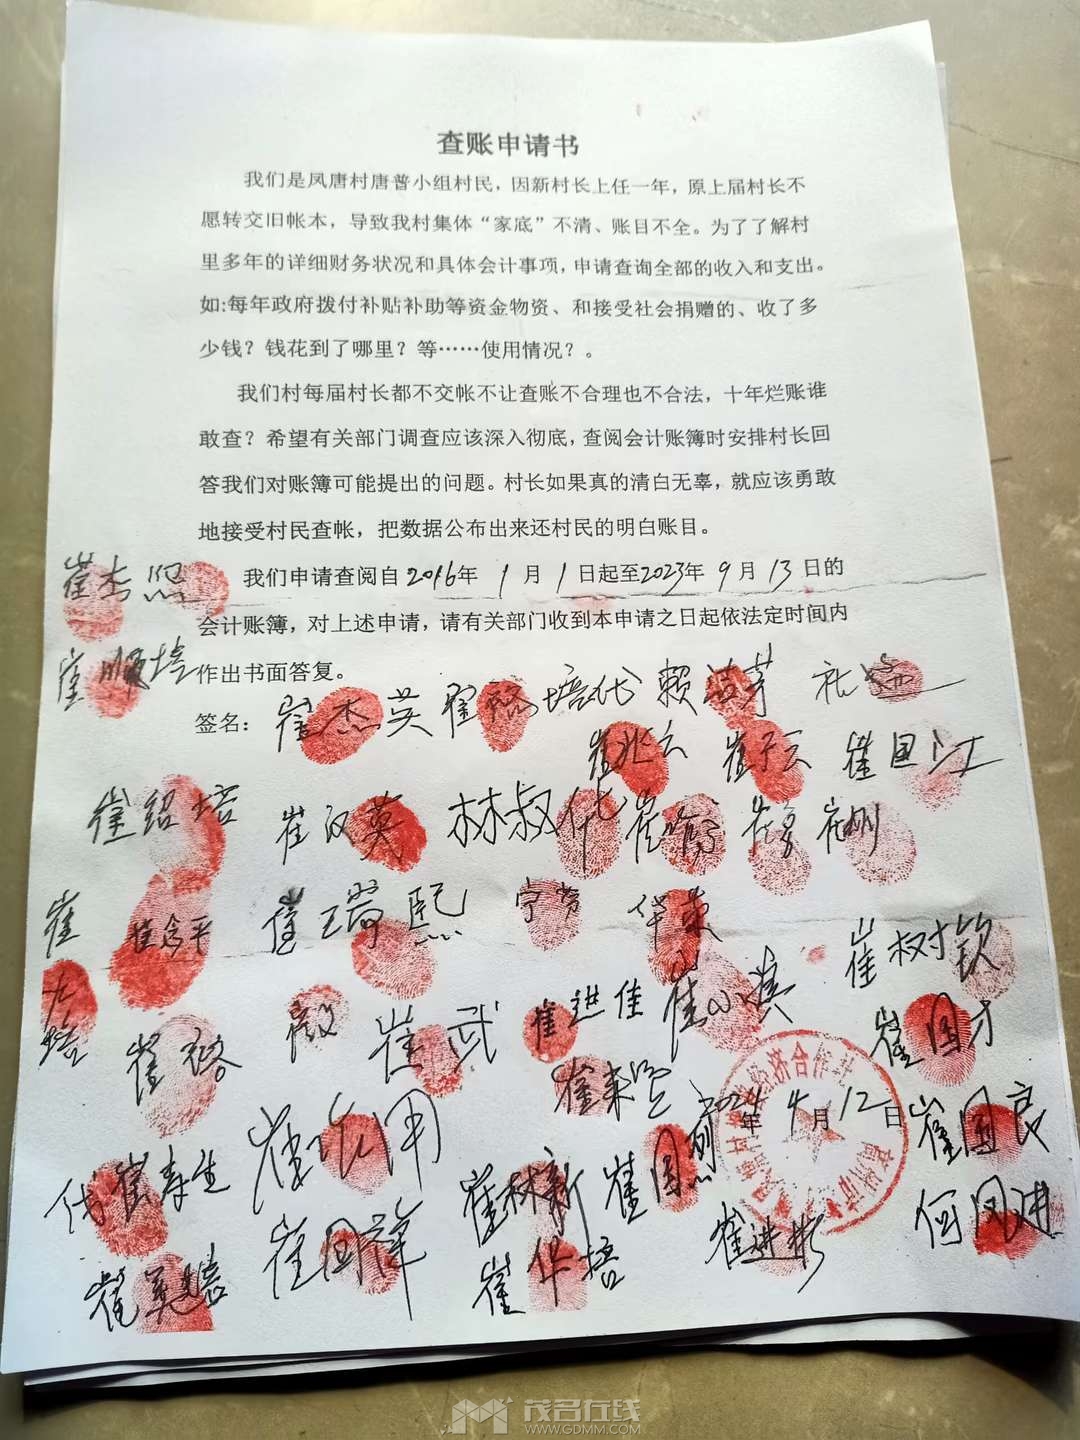 查账申请书
我们是凤唐村唐普小组村民，因新村长上任一年，原上届村长不
愿转交旧帐本，导致我村集体“家底”不清、账目不全。为了了解村
里多年的详细财务状况和具体会计事项，申请查询全部的收入和支出。
如:每年政府拨付补贴补助等资金物资、和接受社会捐赠的、收了多
少钱？钱花到了哪里？等……使用情况？。
我们村每届村长都不交帐不让查账不合理也不合法，十年烂账谁
敢查？希望有关部门调查应该深入彻底，查阅会计账簿时安排村长回
答我们对账簿可能提出的问题。村长如果真的清白无辜，就应该勇敢
地接受村民查帐，把数据公布出来还村民的明白账目。
崔杰熙
我们申请查阅自2016年1月1日起至2023年9月13日的
会计账簿，对上述申请，请有关部门收到本申请之日起依法定时间内
崔顺培
作出书面答复。
签名：崔杰英
崔兆云 崔子云 崔国江
崔绍培 崔汉英 林叔华
崔 崔念平 崔瑞熙
华东
崔树钦
崔武 崔进佳
崔国才
崔来
经济合作社
2024年4月12日
崔国良
代崔寿生
崔林新 崔国烈
崔国祥
崔华培 崔进彬
何凤进
茂名在线
WWW.GDMM.COM